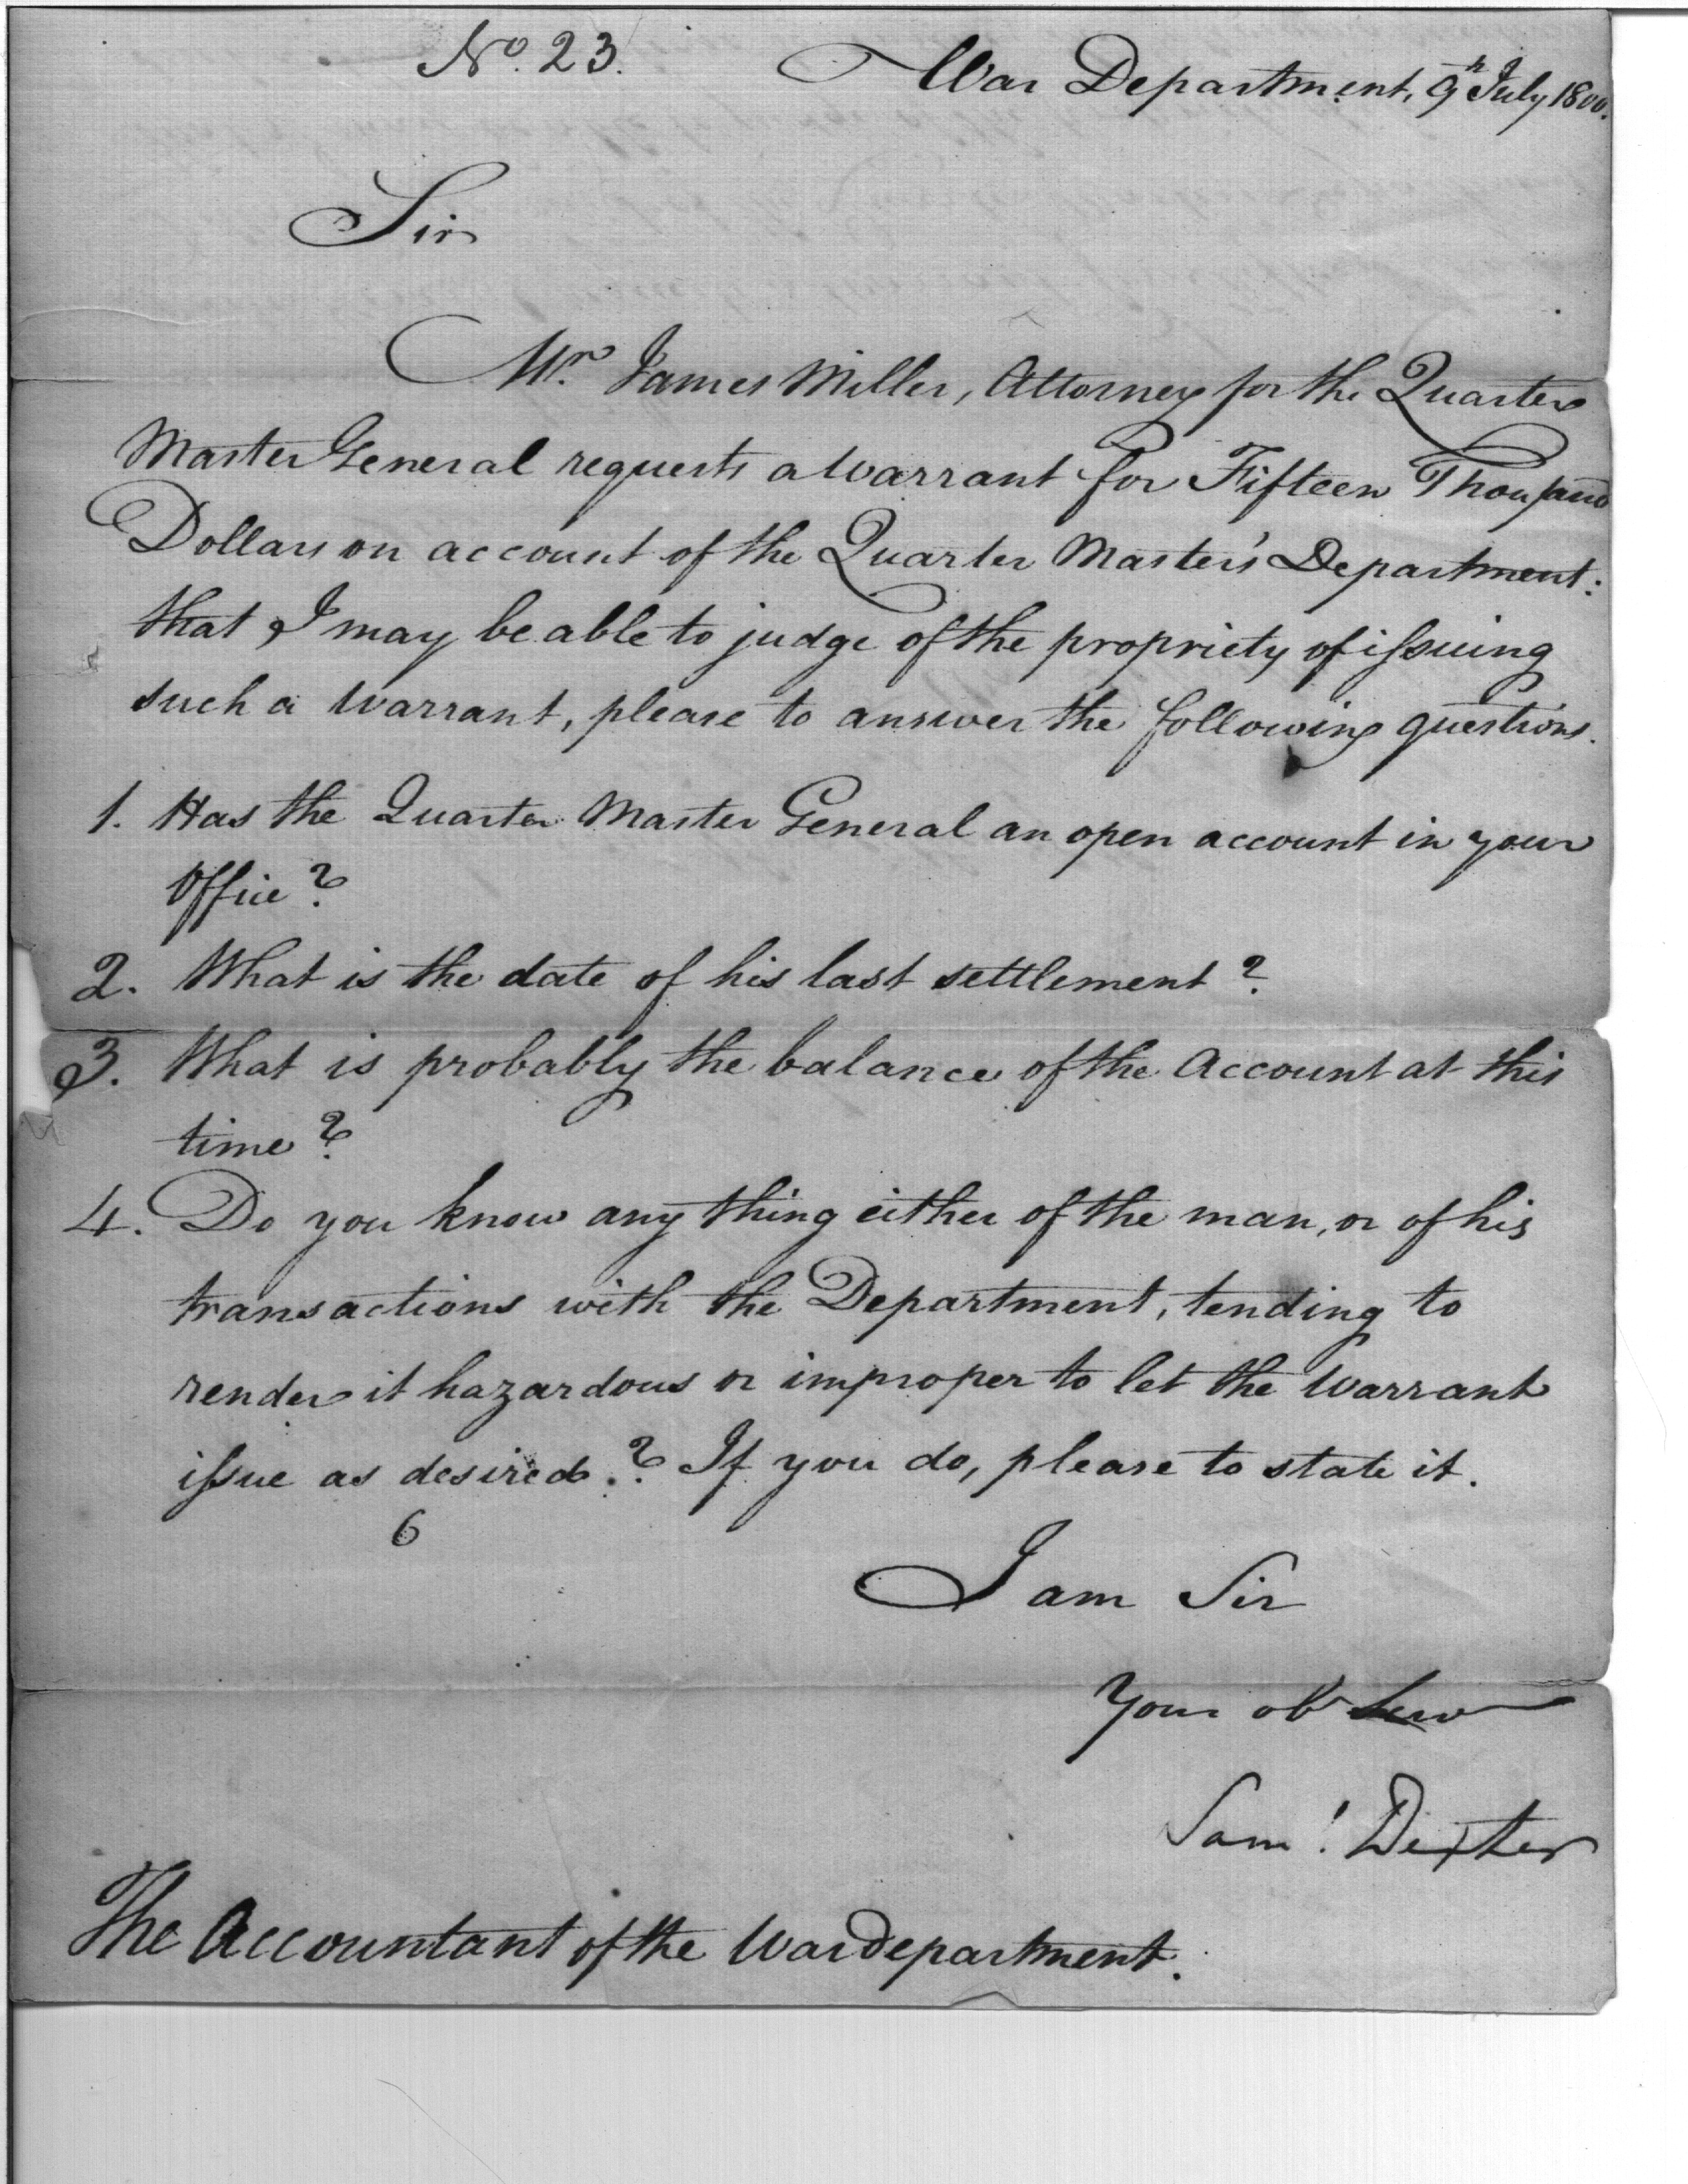 No. 23.
War Department, 9th July 1800.
Sir
Mr. James Miller, Attorney for the Quarter
Master General requests a Warrant for Fifteen Thousand
Dollars on account of the Quarter Master's Department:
that I may be able to judge of the propriety of issuing
such a Warrant, please to answer the following questions.
1. Has the Quarter Master General an open account in your
Office?
2. What is the date of his last settlement?
3. What is probably the balance of the Account at this
time?
4. Do you know any thing either of the man, or of his
transactions with the Department, tending to
render it hazardous or improper to let the Warrant
issue as desired.? If you do, please to state it.
6
I am Sir
Your ob Serv
Saml. Dexter
The Accountant of the War department.